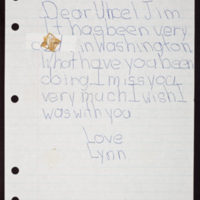 Dear Uncel Jim
It has been very
in Washington
What have you been
doing I miss you
very much I wish I
was with you
Love
Lynn